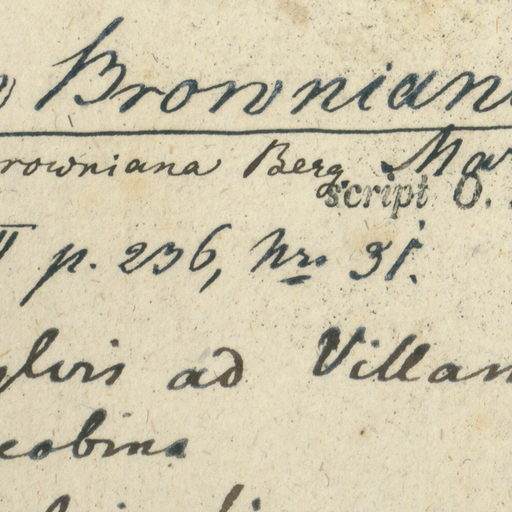 Browniana
rowniana Berg. Mar
script. O.
II p. 236, Nro 31.
ylvis ad Villam
cobina